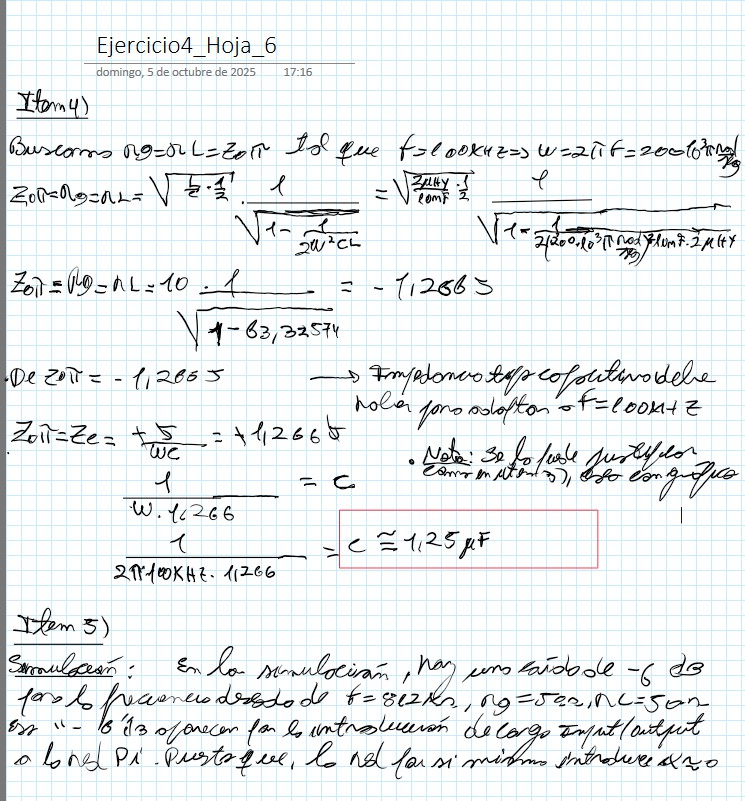 Ejercicio4_Hoja_6
domingo, 5 de octubre de 2025 17:16
Item 4)
Buscamos rg=rL=Zoπ tal que f=100KHZ=> w=2πf=200·10³π rad/sg
Zoπ=rg=rL=√(L/C · 1/2) · 1/√(1 - 1/(2w²CL)) = √(2μHy/10nF · 1/2) · 1/√(1 - 1/(2(200·10³π rad/sg)²·10nF·2μHy))
Zoπ=rg=rL=10 · 1/√(1-63,32574) = -1,2665J
De Zoπ = -1,2665J → Impedancia tipo capacitivo debe
haber para adaptar a f=100KHZ
Zoπ=Zc= +J/wc = +1,266J
. Nota: Se lo puede justificar
como en item 3), caso con gráfica
1/(w·1,266) = c
1/(2π100KHZ·1,266) = c ≅ 1,25μF
Item 5)
Simulación: En la simulación, hay una caída de -6 dB
para la frecuencia deseada de f=812KHz, rg=5Ω, rL=50Ω
Esa "-6 dB aparecen por la introducción de carga Input/output
a la red Pi. Puesto que, la red por si misma introduce α≈0